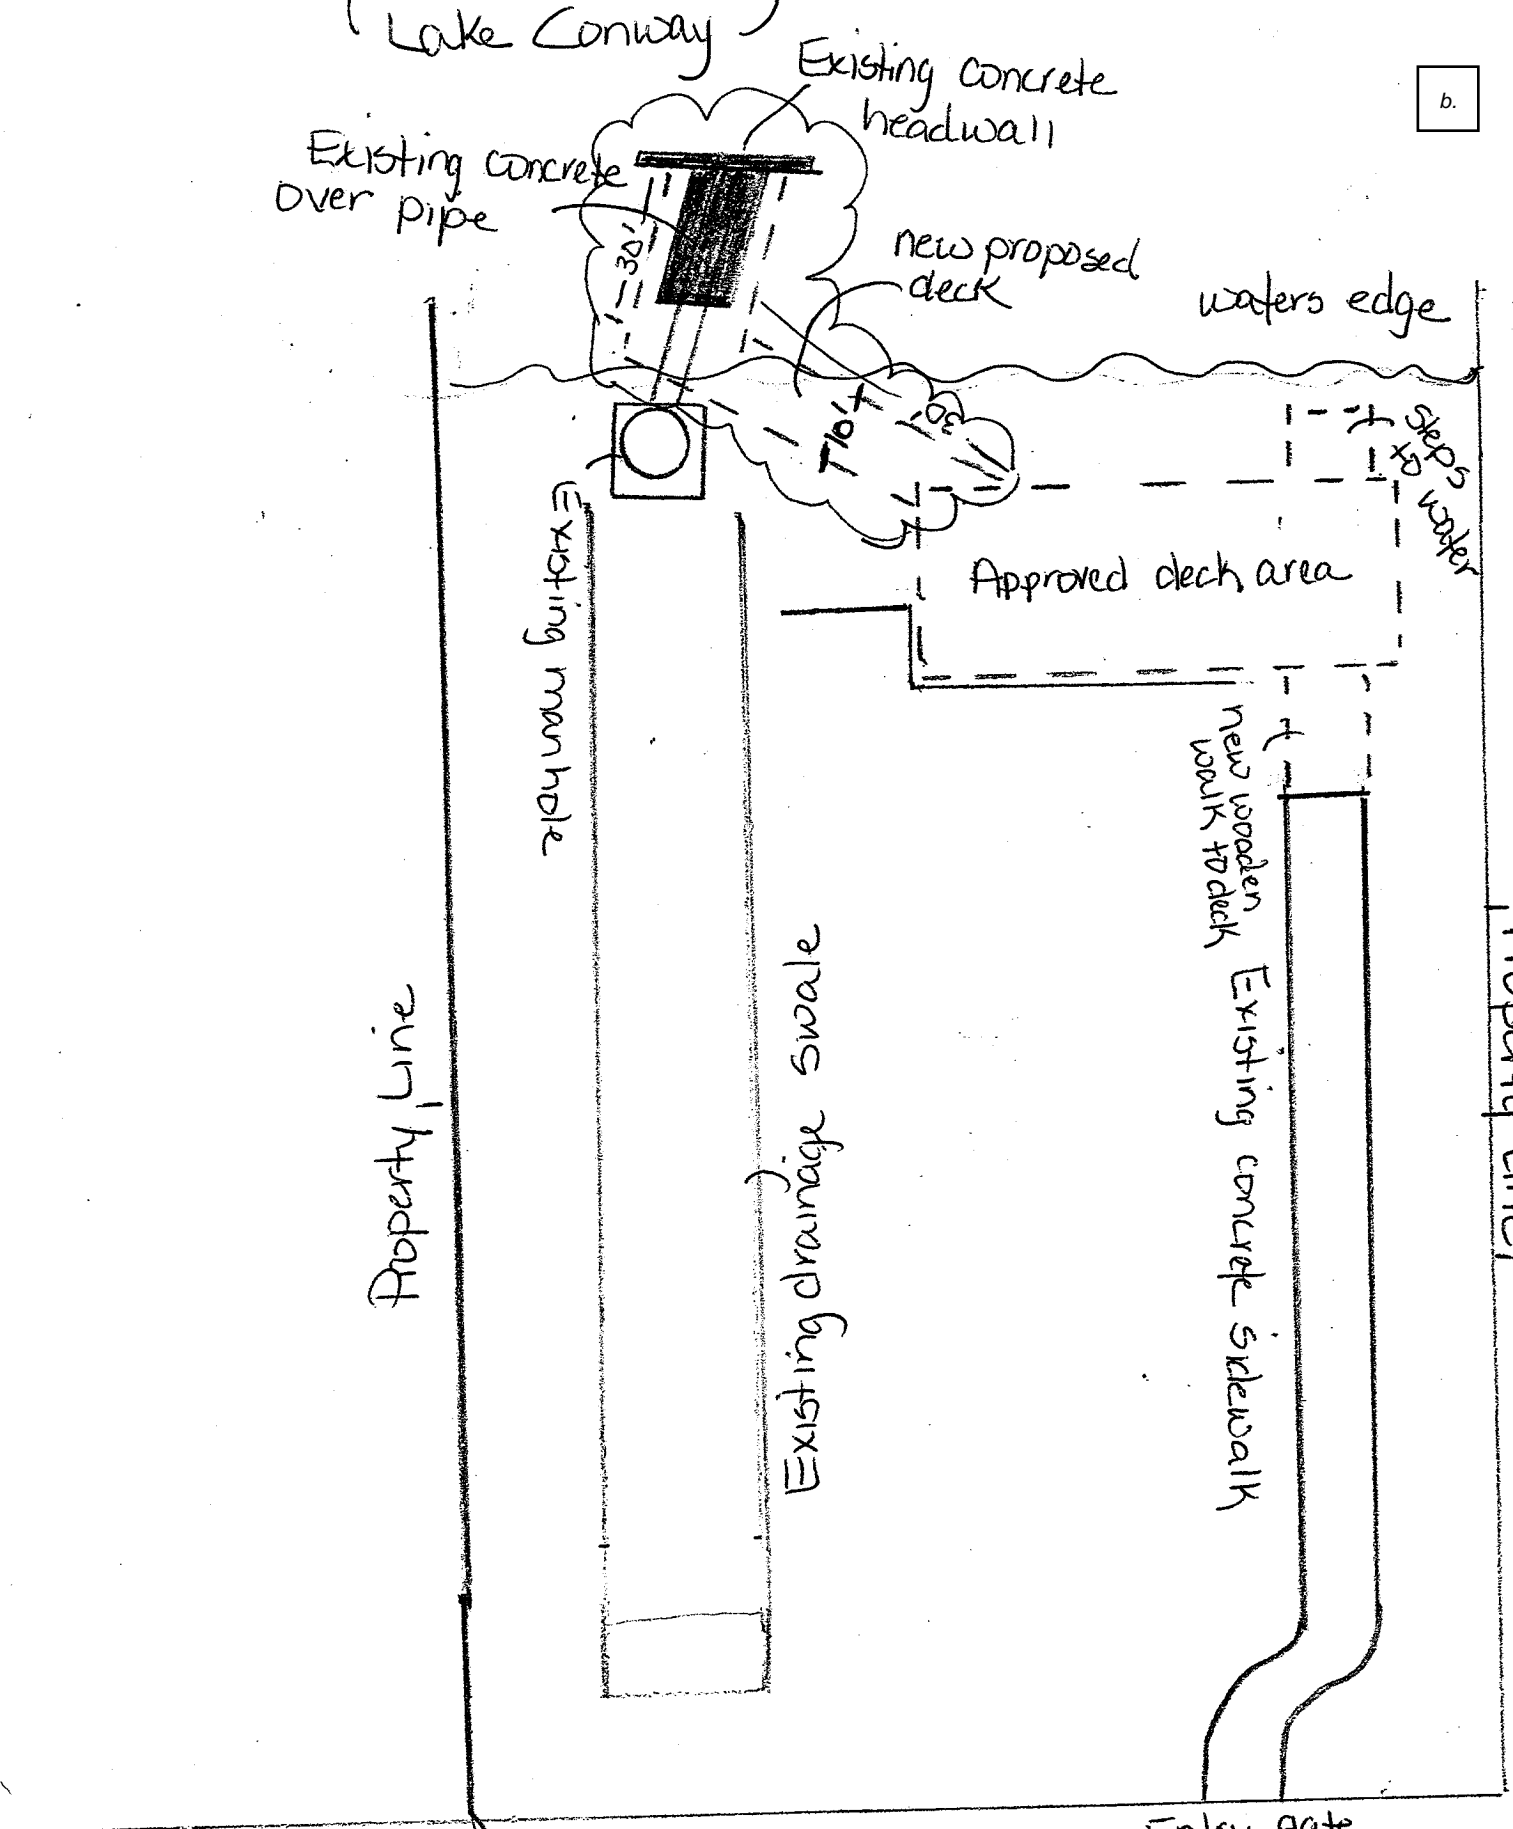 (Lake Conway)
Existing concrete
headwall
b.
Existing concrete
over pipe
30'
new proposed
deck
waters edge
10'
30'
steps
to water
Existing manhole
Approved deck area
new wooden
walk to deck
Property Line
Existing drainage swale
Existing concrete sidewalk
Property Line
Entry gate